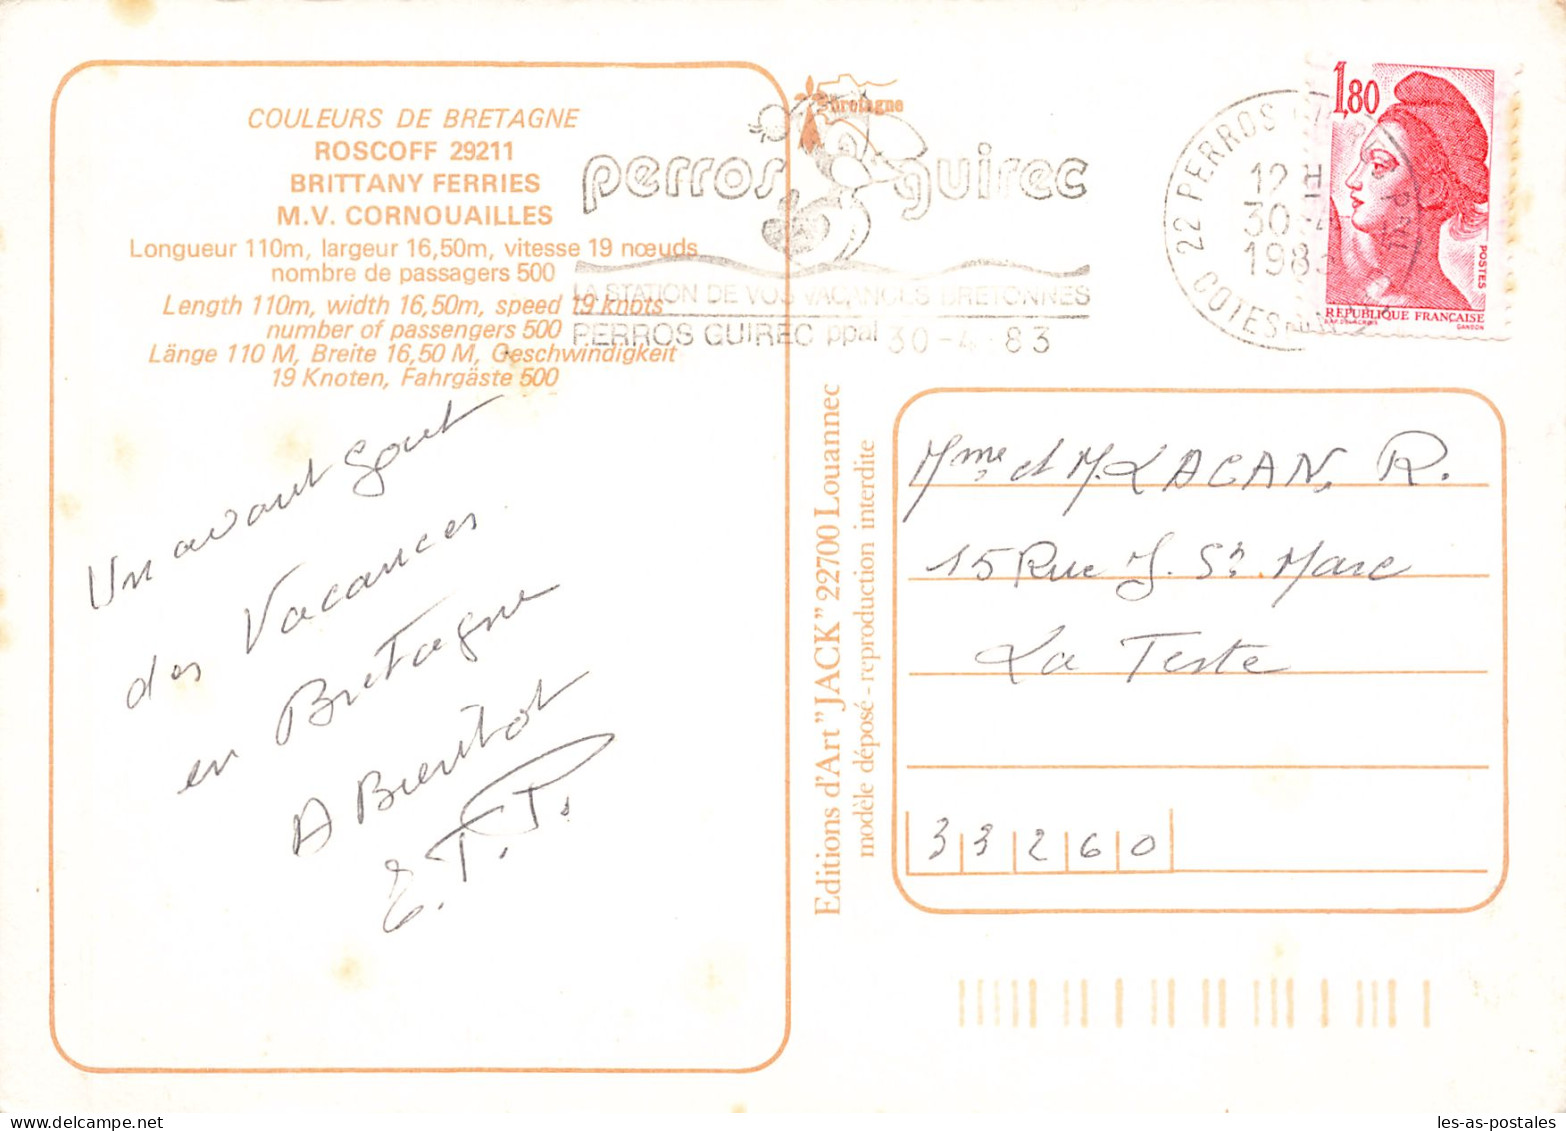 COULEURS DE BRETAGNE
ROSCOFF 29211
BRITTANY FERRIES
M.V. CORNOUAILLES
Longueur 110m, largeur 16,50m, vitesse 19 nœuds
nombre de passagers 500
Length 110m, width 16,50m, speed 19 knots
number of passengers 500
Länge 110 M, Breite 16,50 M, Geschwindigkeit
19 Knoten, Fahrgäste 500
Un avant gout
des Vacances
en Bretagne
A Bientot
E.T.P.
bretagne
perros guirec
LA STATION DE VOS VACANCES BRETONNES
PERROS GUIREC ppal 30-4-83
22 PERROS
12 H
30-4
1983
COTES
1,80
POSTES
REPUBLIQUE FRANÇAISE
GANDON
Editions d'Art "JACK" 22700 Louannec
modèle déposé - reproduction interdite
Mme et M. LACAN, R.
15 Rue J. St. Marc
La Teste
33260
les-as-postales